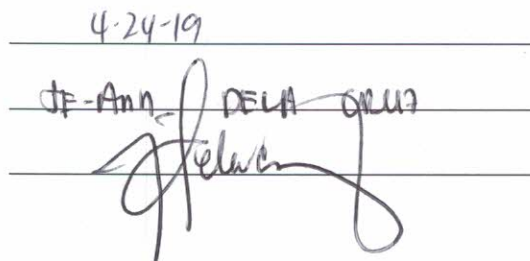 4-24-19
JF-Ann DELA CRUZ